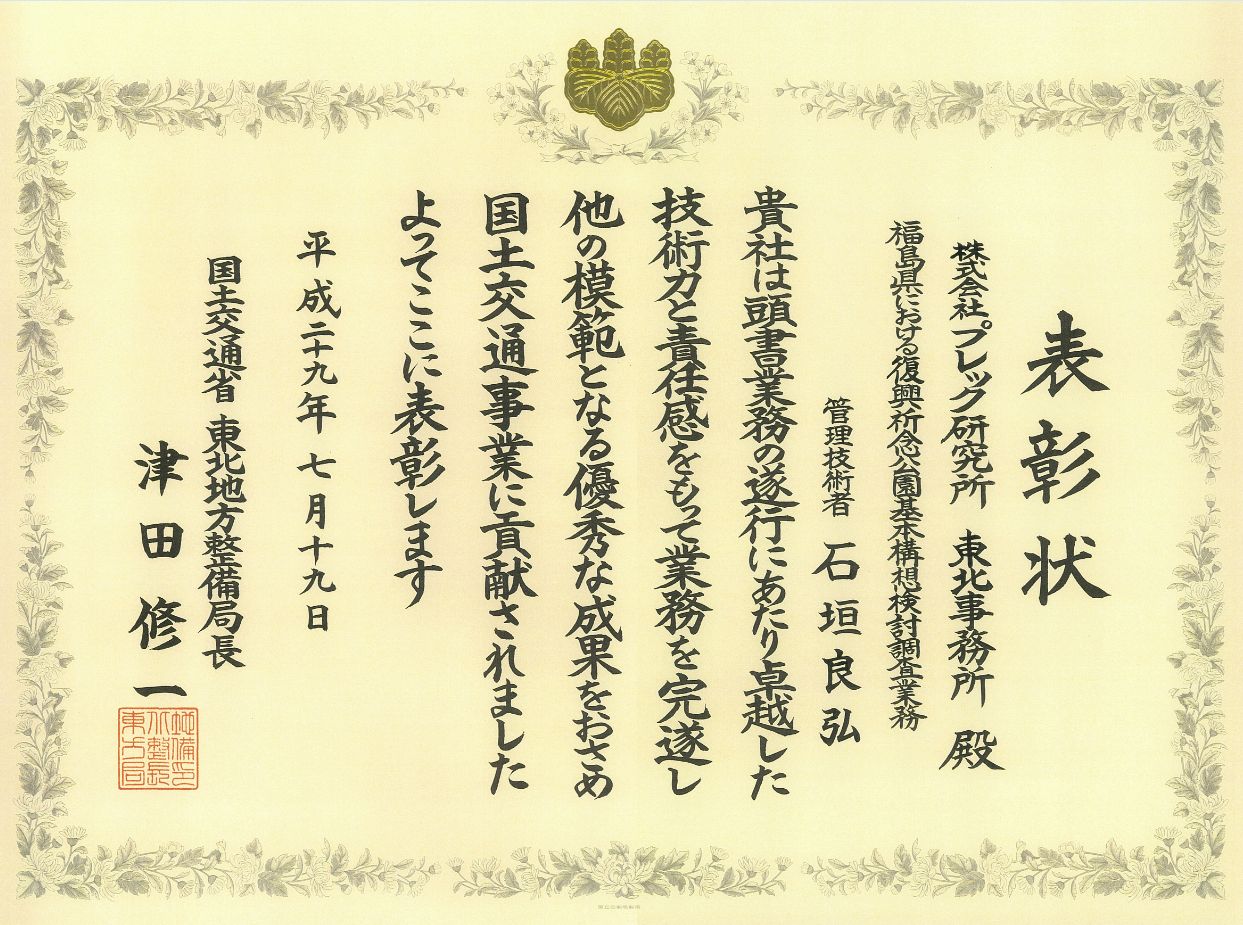 表彰状
株式会社プレック研究所 東北事務所 殿
福島県における復興祈念公園基本構想検討調査業務
管理技術者 石垣良弘
貴社は頭書業務の遂行にあたり卓越した
技術力と責任感をもって業務を完遂し
他の模範となる優秀な成果をおさめ
国土交通事業に貢献されました
よってここに表彰します
平成二十九年 七月十九日
国土交通省 東北地方整備局長
津田修一